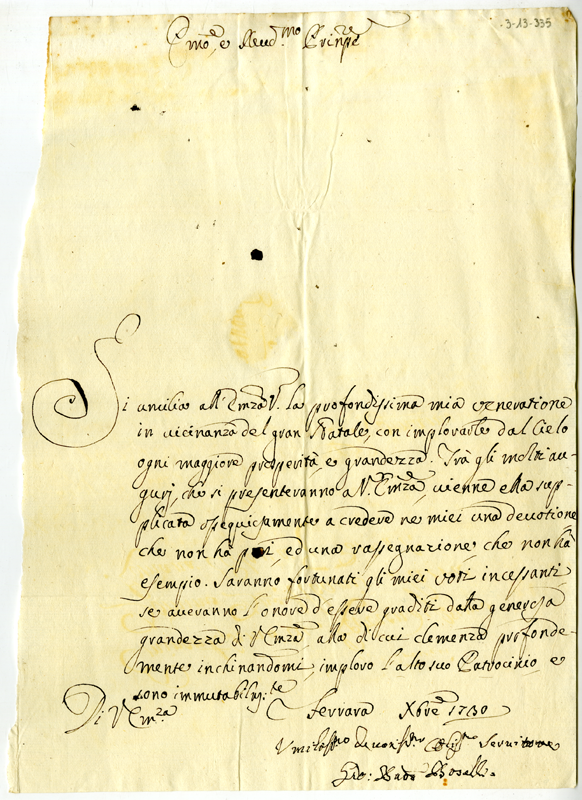 3-13-335
Emo, e Reud.mo Prinpe
Si umilia all'Emza V. la profondissima mia veneratione
in vicinanza del gran Natale, con implorarle dal Cielo
ogni maggiore prosperità, e grandezza. Trà gli molti au-
gurj, che si presenteranno a V. Emza, vienne ella sup-
plicata ossequijamente a credere ne miei una devotione
che non hà pari, ed una rassegnazione che non hà
esempio. Saranno fortunati gli miei voti incessanti
se averanno l'onore d'essere graditi dalla generosa
grandezza di V. Emza, alla di cui clemenza profonde-
mente inchinandomi, imploro l'alto suo Patrocinio, e
sono immutabilmte
Di V. Emza
Ferrara Xbre 1730
Umilssmo Deuotissmo Servitore
Gio: Batta